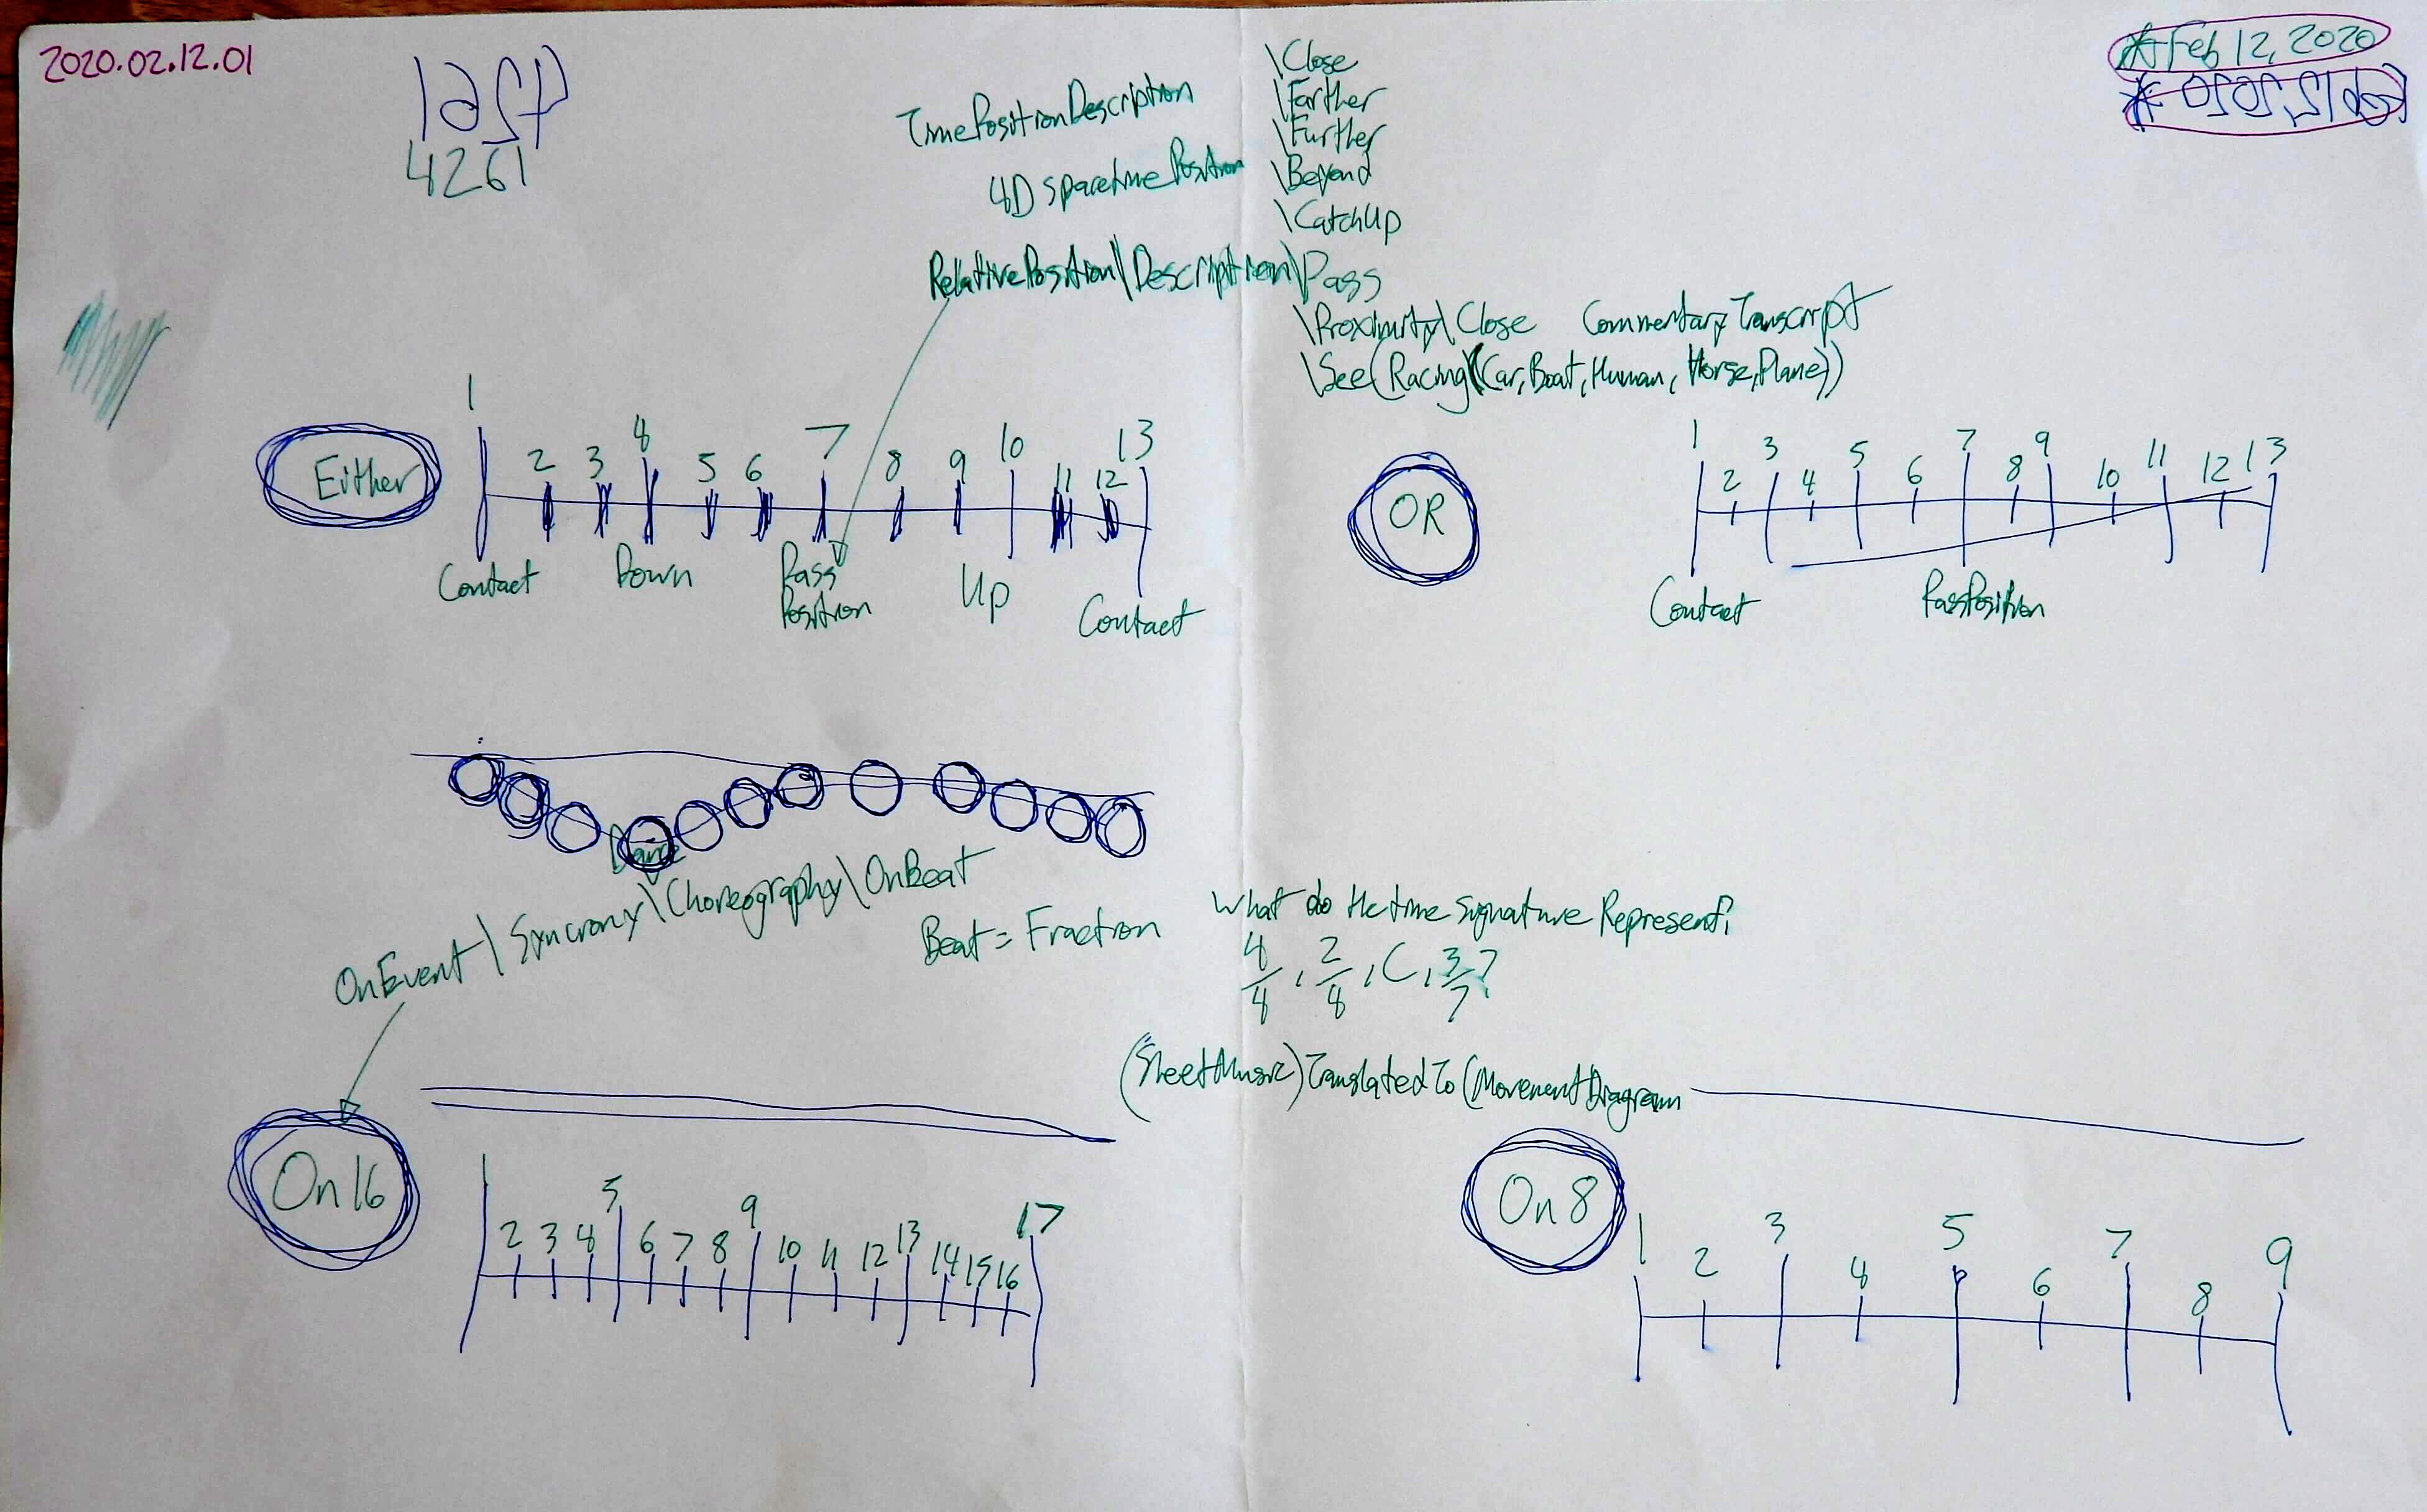 2020.02.12.01
4261
4261
\Close
\Farther
\Further
\Beyond
\CatchUp
*Feb 12, 2020
Feb 12, 2020 *
TimePositionDescription
4D SpacetimePosition
RelativePosition\Description\Pass
\Proximity\Close CommentaryTranscript
\See(Racing\(Car, Boat, Human, Horse, Plane))
Either
1 2 3 4 5 6 7 8 9 10 11 12 13
Contact Down Pass Position Up Contact
OR
1 2 3 4 5 6 7 8 9 10 11 12 13
Contact PassPosition
Dance
OnEvent\Syncrony\Choreography\OnBeat
Beat = Fraction
What do the time signature Represent?
4/4, 2/8, C, 3/7?
(SheetMusic)TranslatedTo(MovementDiagram
On 16
2 3 4 5 6 7 8 9 10 11 12 13 14 15 16 17
On 8
1 2 3 4 5 6 7 8 9